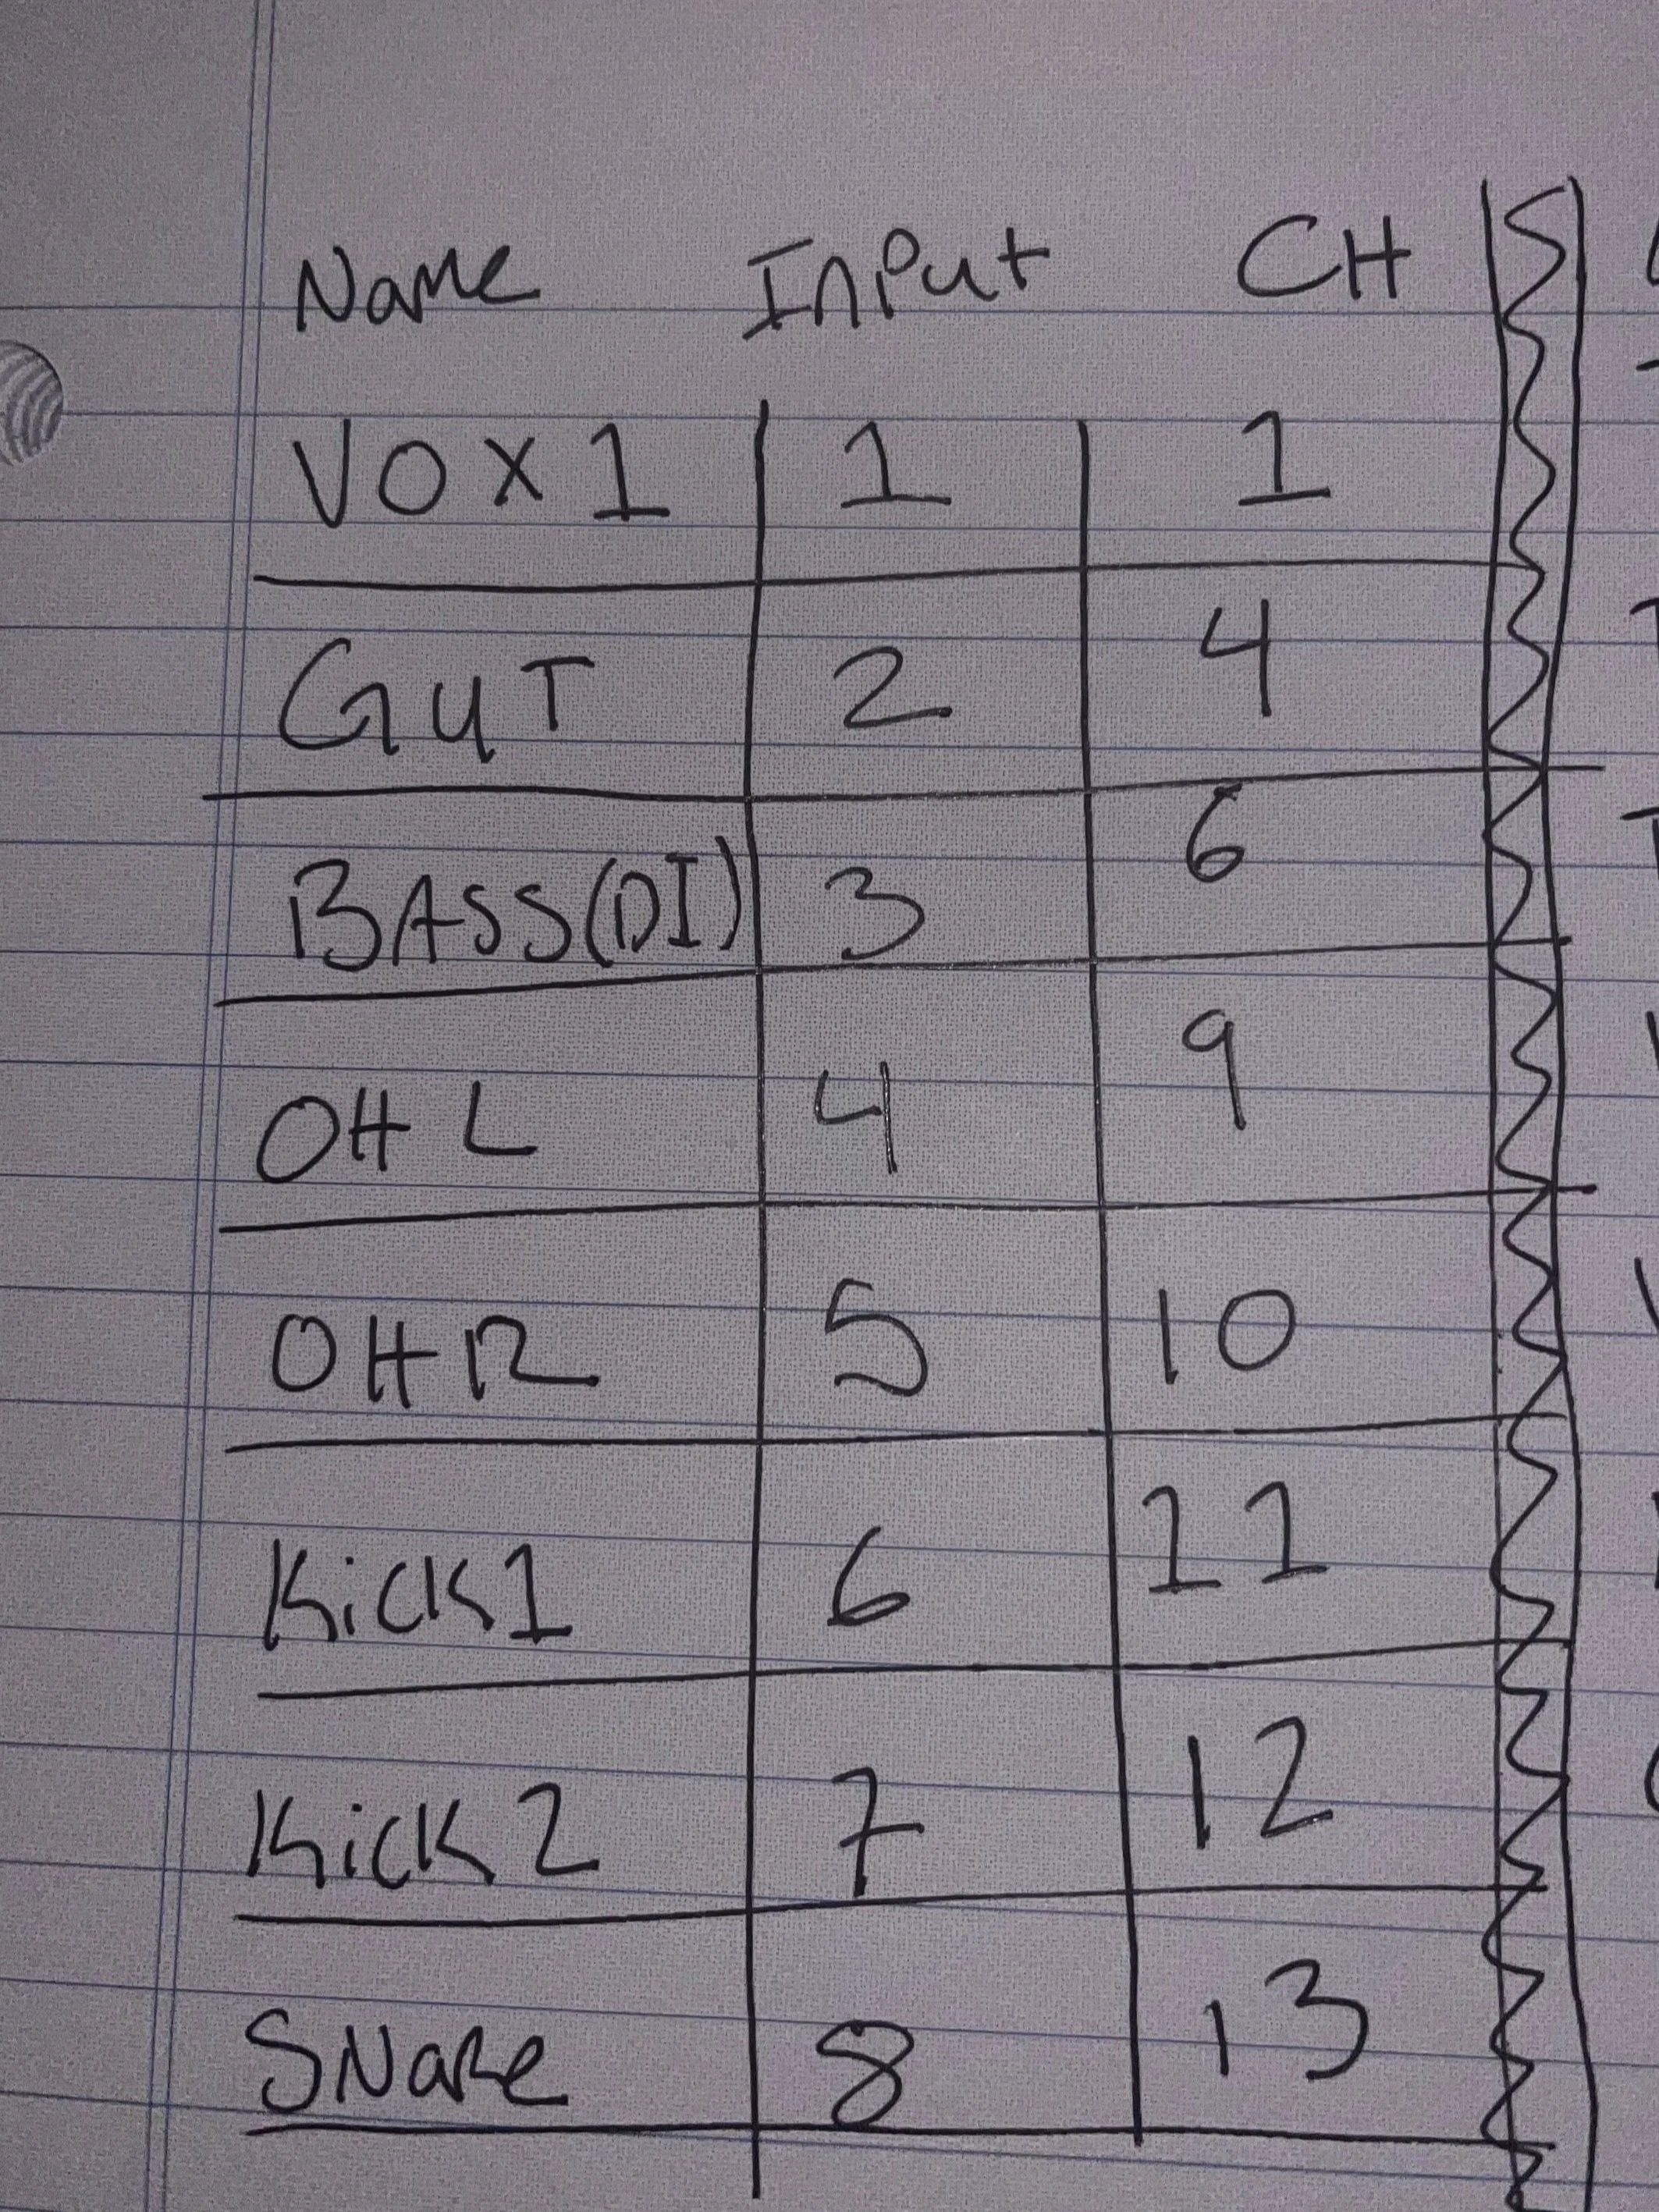 Name Input CH
VOX 1 1 1
GUT 2 4
BASS(DI) 3 6
OH L 4 9
OH R 5 10
Kick1 6 11
Kick 2 7 12
SNaRe 8 13